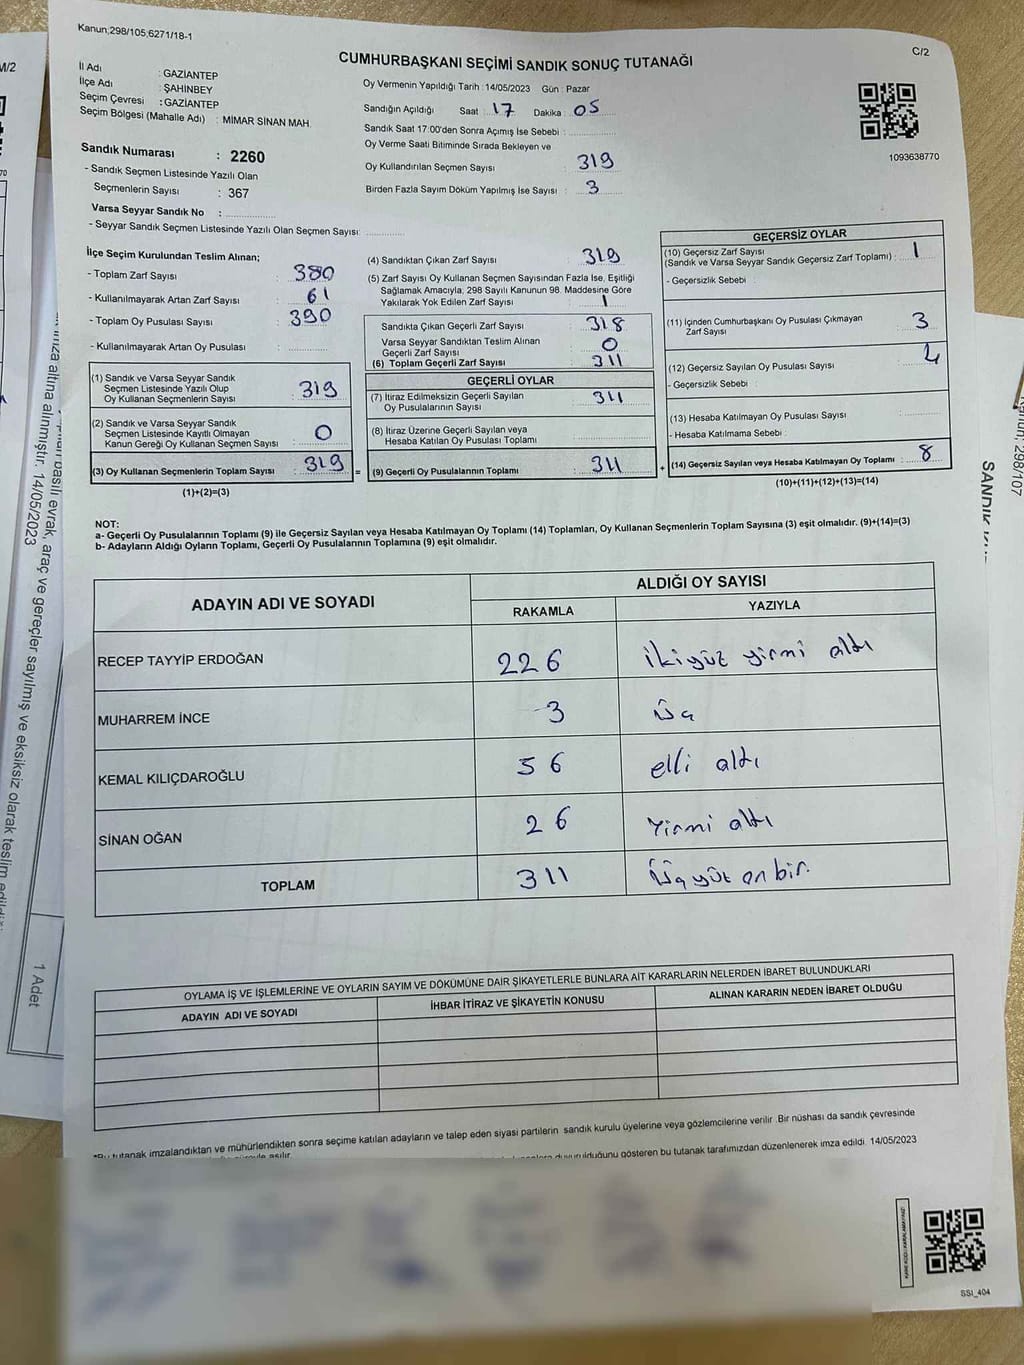 Kanun;298/105;6271/18-1
C/2
CUMHURBAŞKANI SEÇİMİ SANDIK SONUÇ TUTANAĞI
İl Adı : GAZİANTEP
İlçe Adı : ŞAHİNBEY
Seçim Çevresi : GAZİANTEP
Seçim Bölgesi (Mahalle Adı) : MİMAR SİNAN MAH.
Sandık Numarası : 2260
- Sandık Seçmen Listesinde Yazılı Olan
Seçmenlerin Sayısı : 367
Varsa Seyyar Sandık No :
- Seyyar Sandık Seçmen Listesinde Yazılı Olan Seçmen Sayısı:
Oy Vermenin Yapıldığı Tarih : 14/05/2023 Gün : Pazar
Sandığın Açıldığı Saat : 17 Dakika : 05
Sandık Saat 17:00'den Sonra Açımış İse Sebebi :
Oy Verme Saati Bitiminde Sırada Bekleyen ve
Oy Kullandırılan Seçmen Sayısı : 319
Birden Fazla Sayım Döküm Yapılmış İse Sayısı : 3
1093638770
İlçe Seçim Kurulundan Teslim Alınan;
- Toplam Zarf Sayısı : 380
- Kullanılmayarak Artan Zarf Sayısı : 61
- Toplam Oy Pusulası Sayısı : 390
- Kullanılmayarak Artan Oy Pusulası :
(1) Sandık ve Varsa Seyyar Sandık
Seçmen Listesinde Yazılı Olup
Oy Kullanan Seçmenlerin Sayısı : 319
(2) Sandık ve Varsa Seyyar Sandık
Seçmen Listesinde Kayıtlı Olmayan
Kanun Gereği Oy Kullanan Seçmen Sayısı : 0
(3) Oy Kullanan Seçmenlerin Toplam Sayısı : 319 =
(1)+(2)=(3)
(4) Sandıktan Çıkan Zarf Sayısı : 319
(5) Zarf Sayısı Oy Kullanan Seçmen Sayısından Fazla İse, Eşitliği
Sağlamak Amacıyla, 298 Sayılı Kanunun 98. Maddesine Göre
Yakılarak Yok Edilen Zarf Sayısı : 1
Sandıkta Çıkan Geçerli Zarf Sayısı : 318
Varsa Seyyar Sandıktan Teslim Alınan
Geçerli Zarf Sayısı : 0
(6) Toplam Geçerli Zarf Sayısı : 311
GEÇERLİ OYLAR
(7) İtiraz Edilmeksizin Geçerli Sayılan
Oy Pusulalarının Sayısı : 311
(8) İtiraz Üzerine Geçerli Sayılan veya
Hesaba Katılan Oy Pusulası Toplamı :
(9) Geçerli Oy Pusulalarının Toplamı : 311 +
GEÇERSİZ OYLAR
(10) Geçersiz Zarf Sayısı
(Sandık ve Varsa Seyyar Sandık Geçersiz Zarf Toplamı) : 1
- Geçersizlik Sebebi
(11) İçinden Cumhurbaşkanı Oy Pusulası Çıkmayan
Zarf Sayısı : 3
(12) Geçersiz Sayılan Oy Pusulası Sayısı : 4
- Geçersizlik Sebebi :
(13) Hesaba Katılmayan Oy Pusulası Sayısı :
- Hesaba Katılmama Sebebi :
(14) Geçersiz Sayılan veya Hesaba Katılmayan Oy Toplamı : 8
(10)+(11)+(12)+(13)=(14)
NOT:
a- Geçerli Oy Pusulalarının Toplamı (9) ile Geçersiz Sayılan veya Hesaba Katılmayan Oy Toplamı (14) Toplamları, Oy Kullanan Seçmenlerin Toplam Sayısına (3) eşit olmalıdır. (9)+(14)=(3)
b- Adayların Aldığı Oyların Toplamı, Geçerli Oy Pusulalarının Toplamına (9) eşit olmalıdır.
ADAYIN ADI VE SOYADI
ALDIĞI OY SAYISI
RAKAMLA YAZIYLA
RECEP TAYYİP ERDOĞAN 226 ikiyüz yirmi altı
MUHARREM İNCE 3 üç
KEMAL KILIÇDAROĞLU 56 elli altı
SİNAN OĞAN 26 Yirmi altı
TOPLAM 311 üçyüz on bir.
OYLAMA İŞ VE İŞLEMLERİNE VE OYLARIN SAYIM VE DÖKÜMÜNE DAİR ŞİKAYETLERLE BUNLARA AİT KARARLARIN NELERDEN İBARET BULUNDUKLARI
ADAYIN ADI VE SOYADI İHBAR İTİRAZ VE ŞİKAYETİN KONUSU ALINAN KARARIN NEDEN İBARET OLDUĞU
*Bu tutanak imzalandıktan ve mühürlendikten sonra seçime katılan adayların ve talep eden siyasi partilerin sandık kurulu üyelerine veya gözlemcilerine verilir. Bir nüshası da sandık çevresinde
asılır.
duyurulduğunu gösteren bu tutanak tarafımızdan düzenlenerek imza edildi. 14/05/2023
SSI_404
M/2
imza altına alınmıştır. 14/05/2023
basılı evrak, araç ve gereçler sayılmış ve eksiksiz olarak teslim
1 Adet
298/107